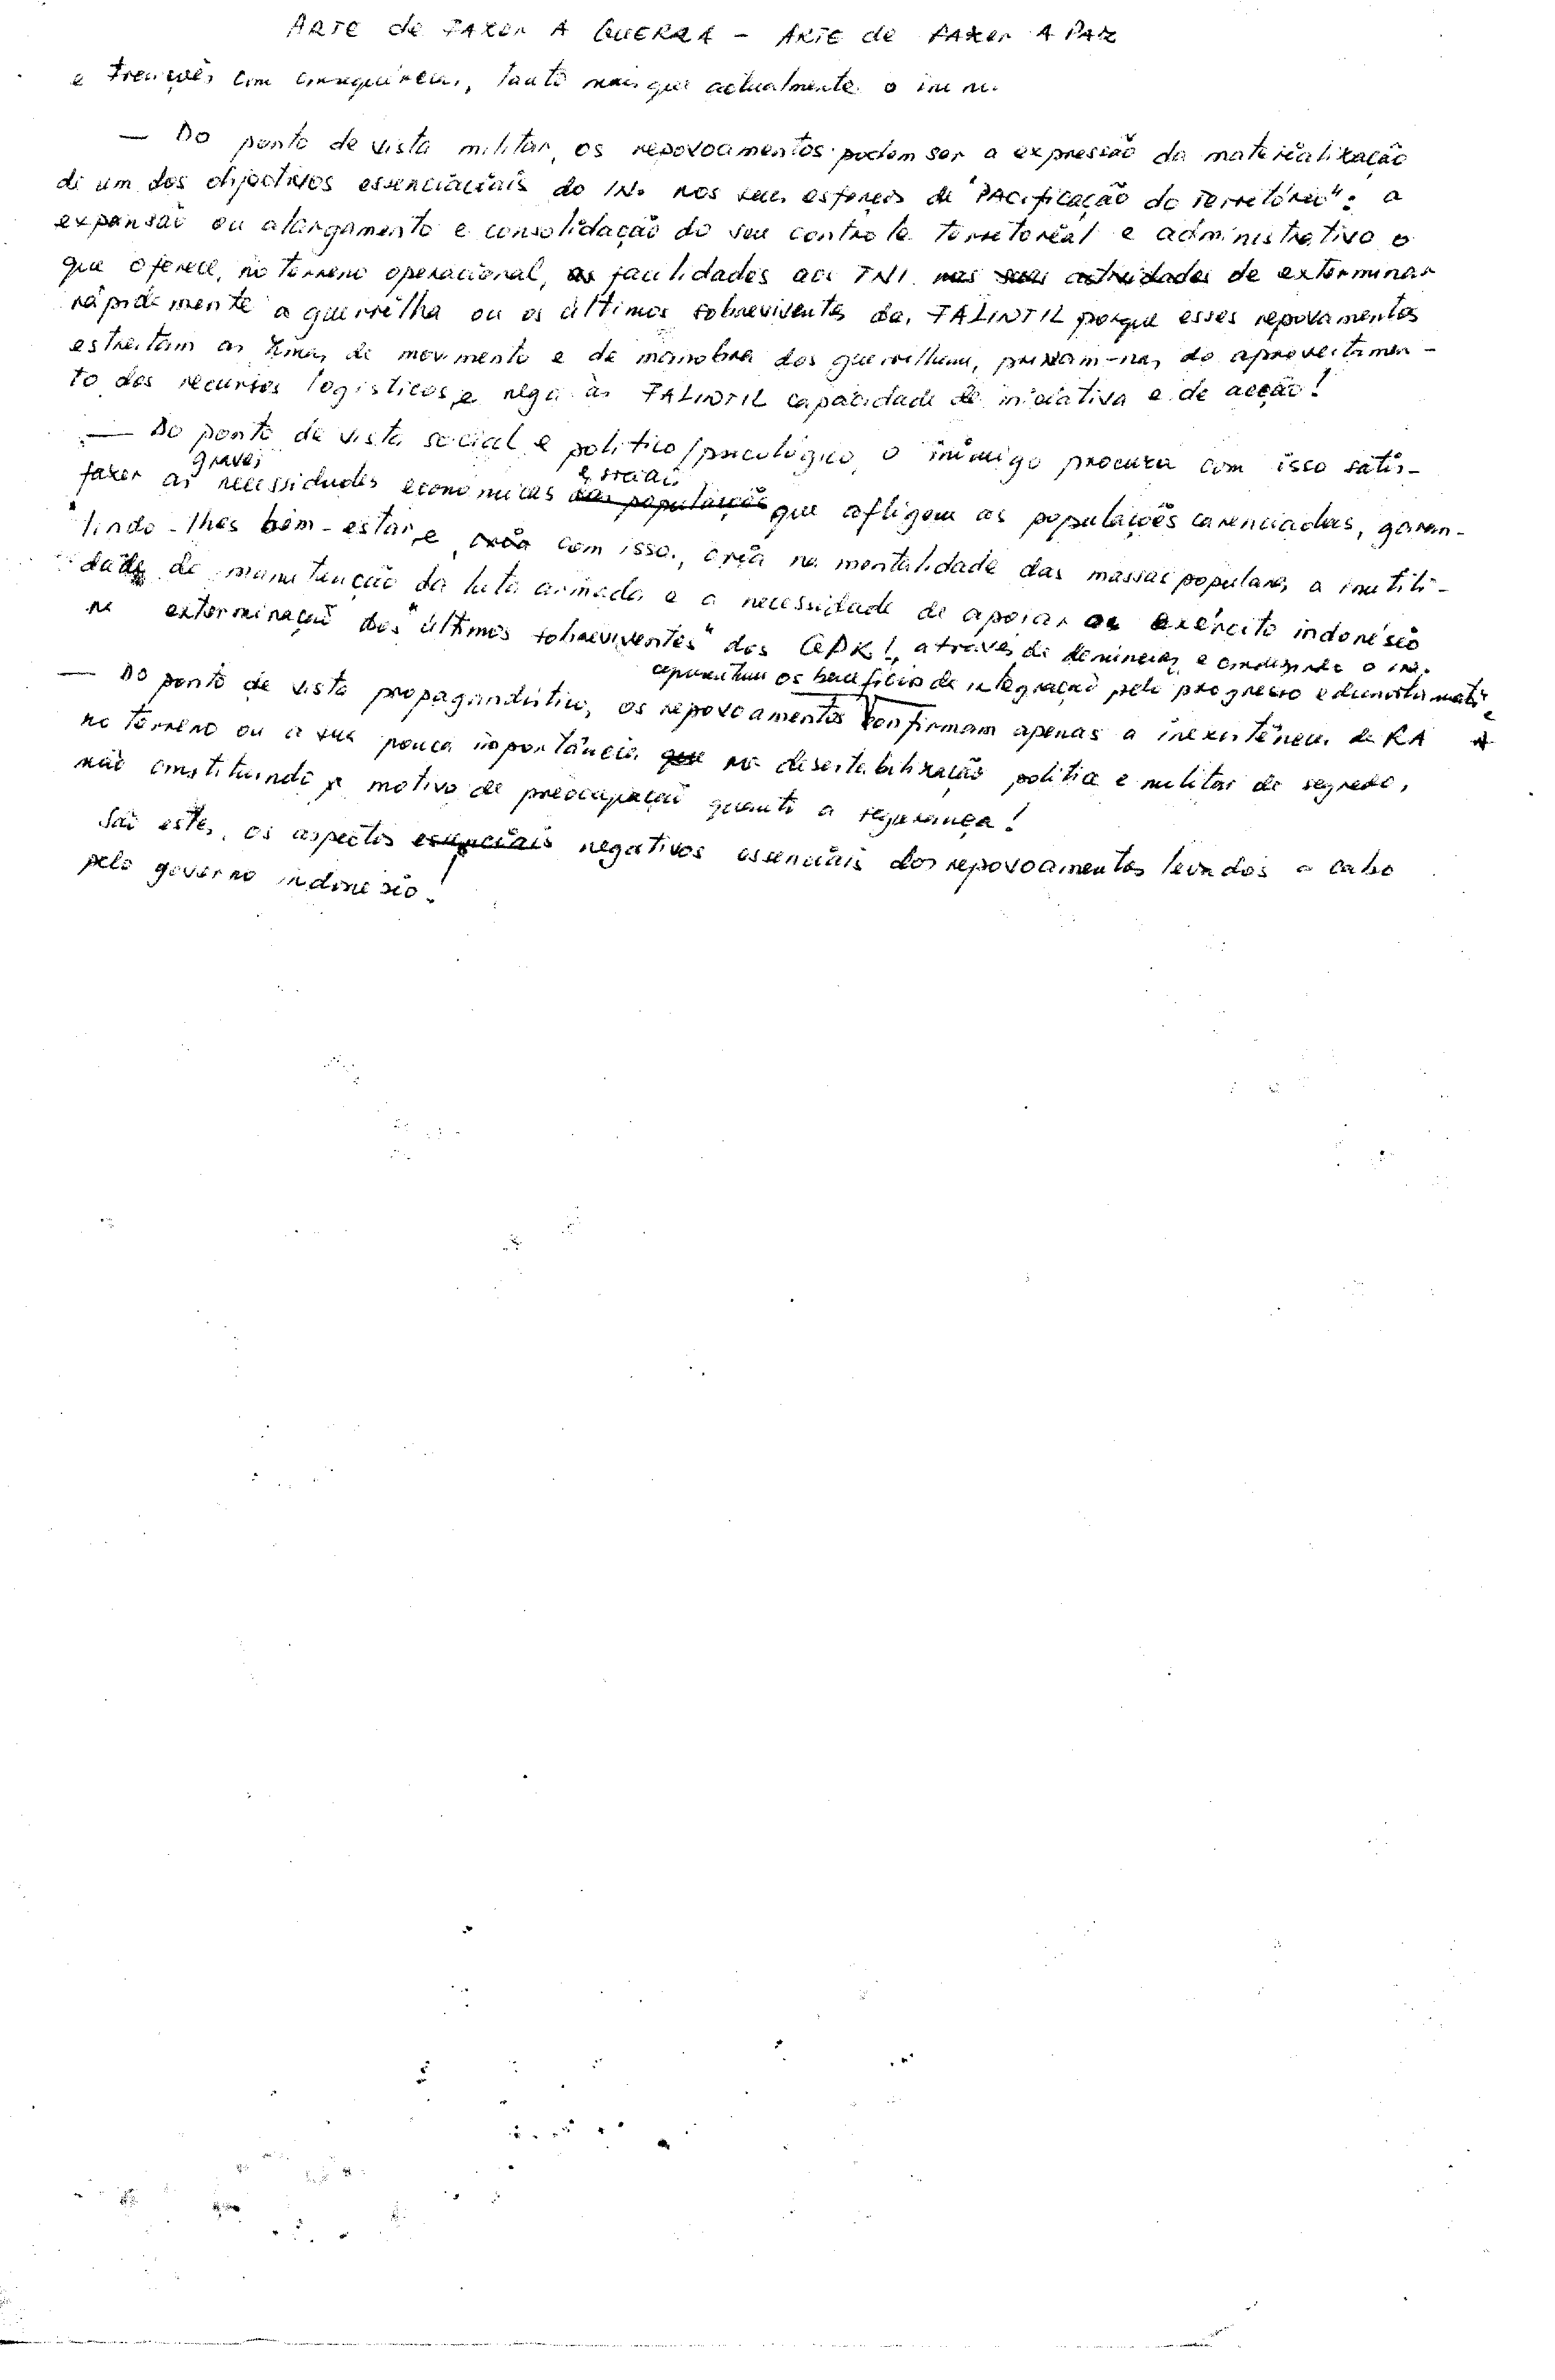 ARTE de FAZER A GUERRA – ARTE de FAZER A PAZ
e com consequências, tanto mais que actualmente o
— Do ponto de vista militar, os repovoamentos podem ser a expressão da materialização
de um dos objectivos essenciaiais do IN. nos seus esforços de "PAcificação do Território": a
expansão ou alargamento e consolidação do seu controle territorial e administrativo o
que oferece, no terreno operacional, as facilidades aos TNI nas suas actividades de exterminar
rápidamente a guerrilha ou os últimos sobreviventes das FALINTIL porque esses repovamentos
estreitam as zonas de movimento e de manobra dos guerrilheiros, privam-nas do aproveitamen-
to dos recursos logísticos e nega às FALINTIL capacidade de iniciativa e de acção!
— Do ponto de vista social e político/psicológico, o inimigo procura com isso satis-
fazer as graves necessidades económicas e sociais das populações que afligem as populações carenciadas, garan-
tindo-lhes bem-estar, e, com isso, cria na mentalidade das massas populares a inutili-
dade de manutenção da luta armada e a necessidade de apoiar o exército indonésio
na exterminação dos "últimos sobreviventes" dos GPK!, através de denúncias e conduzindo o ini.
aparentam os benefícios de integração pelo progresso e
— Do ponto de vista propagandístico, os repovoamentos confirmam apenas a inexistência da RA
no terreno ou a sua pouca importância que na desestabilização política e militar do segredo,
não constituindo motivo de preocupação quanto a segurança!
São estes, os aspectos essenciais negativos essenciais dos repovoamentos levados a cabo
pelo governo indonésio!